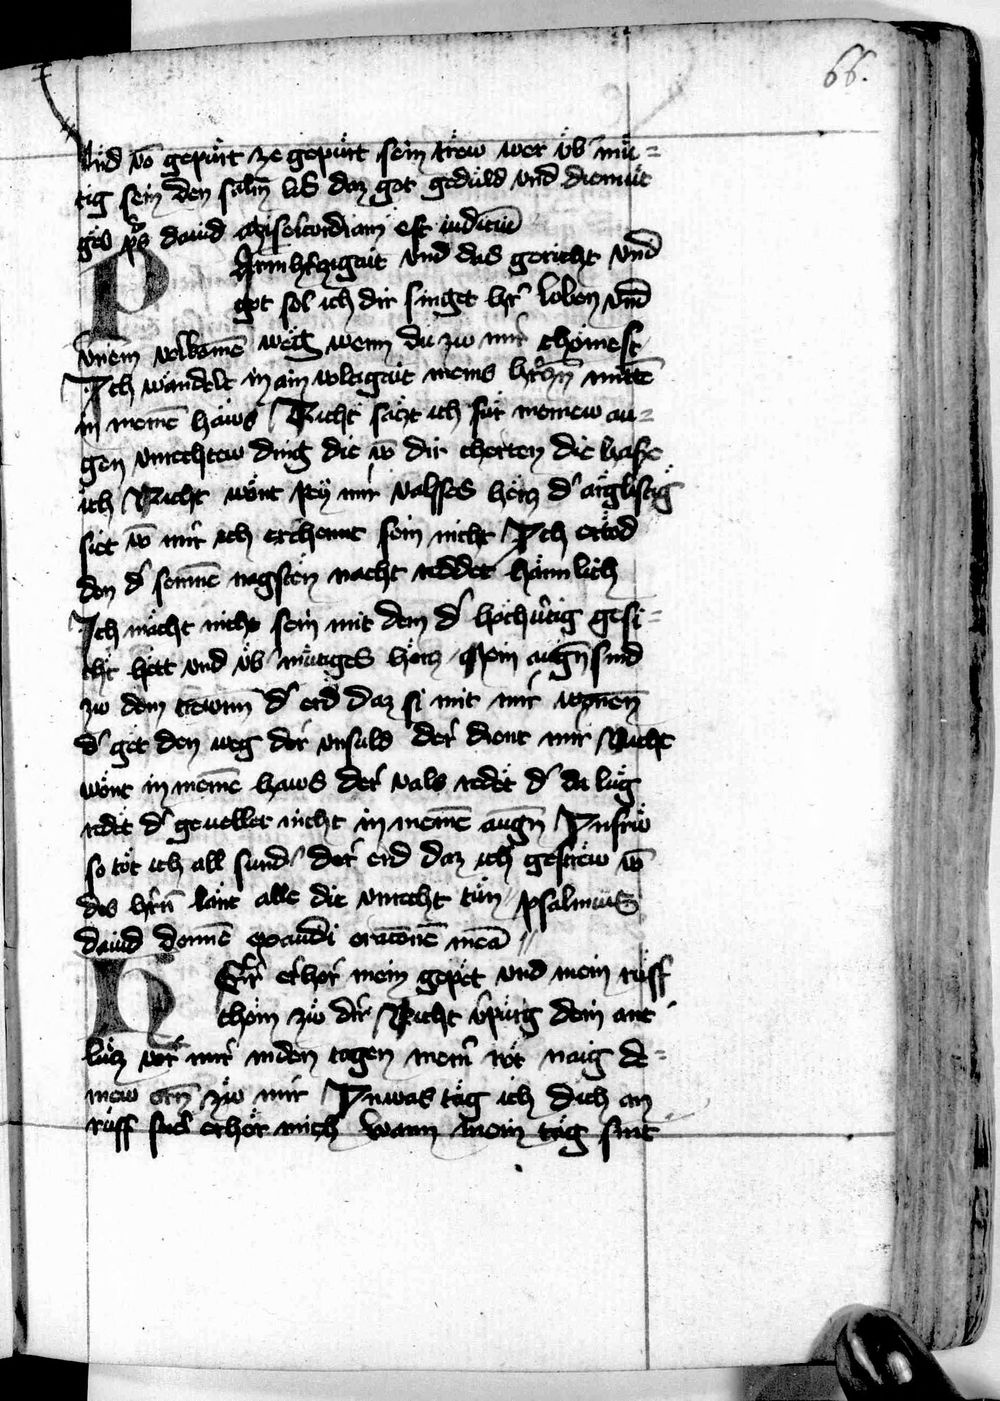 66.
Und vō gepürt ze gepürt sein trew wer üb' mü=
tig sein den salm lis daz got geduld und diemüt
geb ps dauid Misericordiam et iudiciū
P Armh'czigait und das gericht und
got sol ich dir singet h'r loben und
v'nem volkomē weg wenn du zw mir chömest
Ich wandelt in ain voltgait meins h'czn mittē
in meinē haws Nicht saczt ich für meinew au=
gen vnrechtew ding die vō dir cherten die hasse
ich Nicht wont pey mir valsses hercz d' arglistig
siet vō mir ich erchennt sein nicht Ich ertöd
den d' seinnē nagsten nacht reddet hämlich
Ich macht nicht sein mit dem d' hochu'tig gesi=
cht hett und üb'mütiges hercz Mein augn sind
zw dem trewnn d' erd daz si mit mir wonen
d' get den weg der vnsuld der dient mir Nicht
wont in meinē haws der vals redet d' da lug
redet d' geuellet nicht in meinē augn In frw
so töt ich all sund' der erd daz ich gestrew vō
des h'rn stat alle die vnrecht tün psalmus
dauid domnē exaudi oracionē meā
H Err erhor mein gepet und mein rüff
chöm zw dir Nicht v'pirg dein ant
lücz vor mir inden tagen meinr nöt naig de=
inew orn zw mir In was tag ich dich an
rüff snel erhör mich Wann mein tag sint